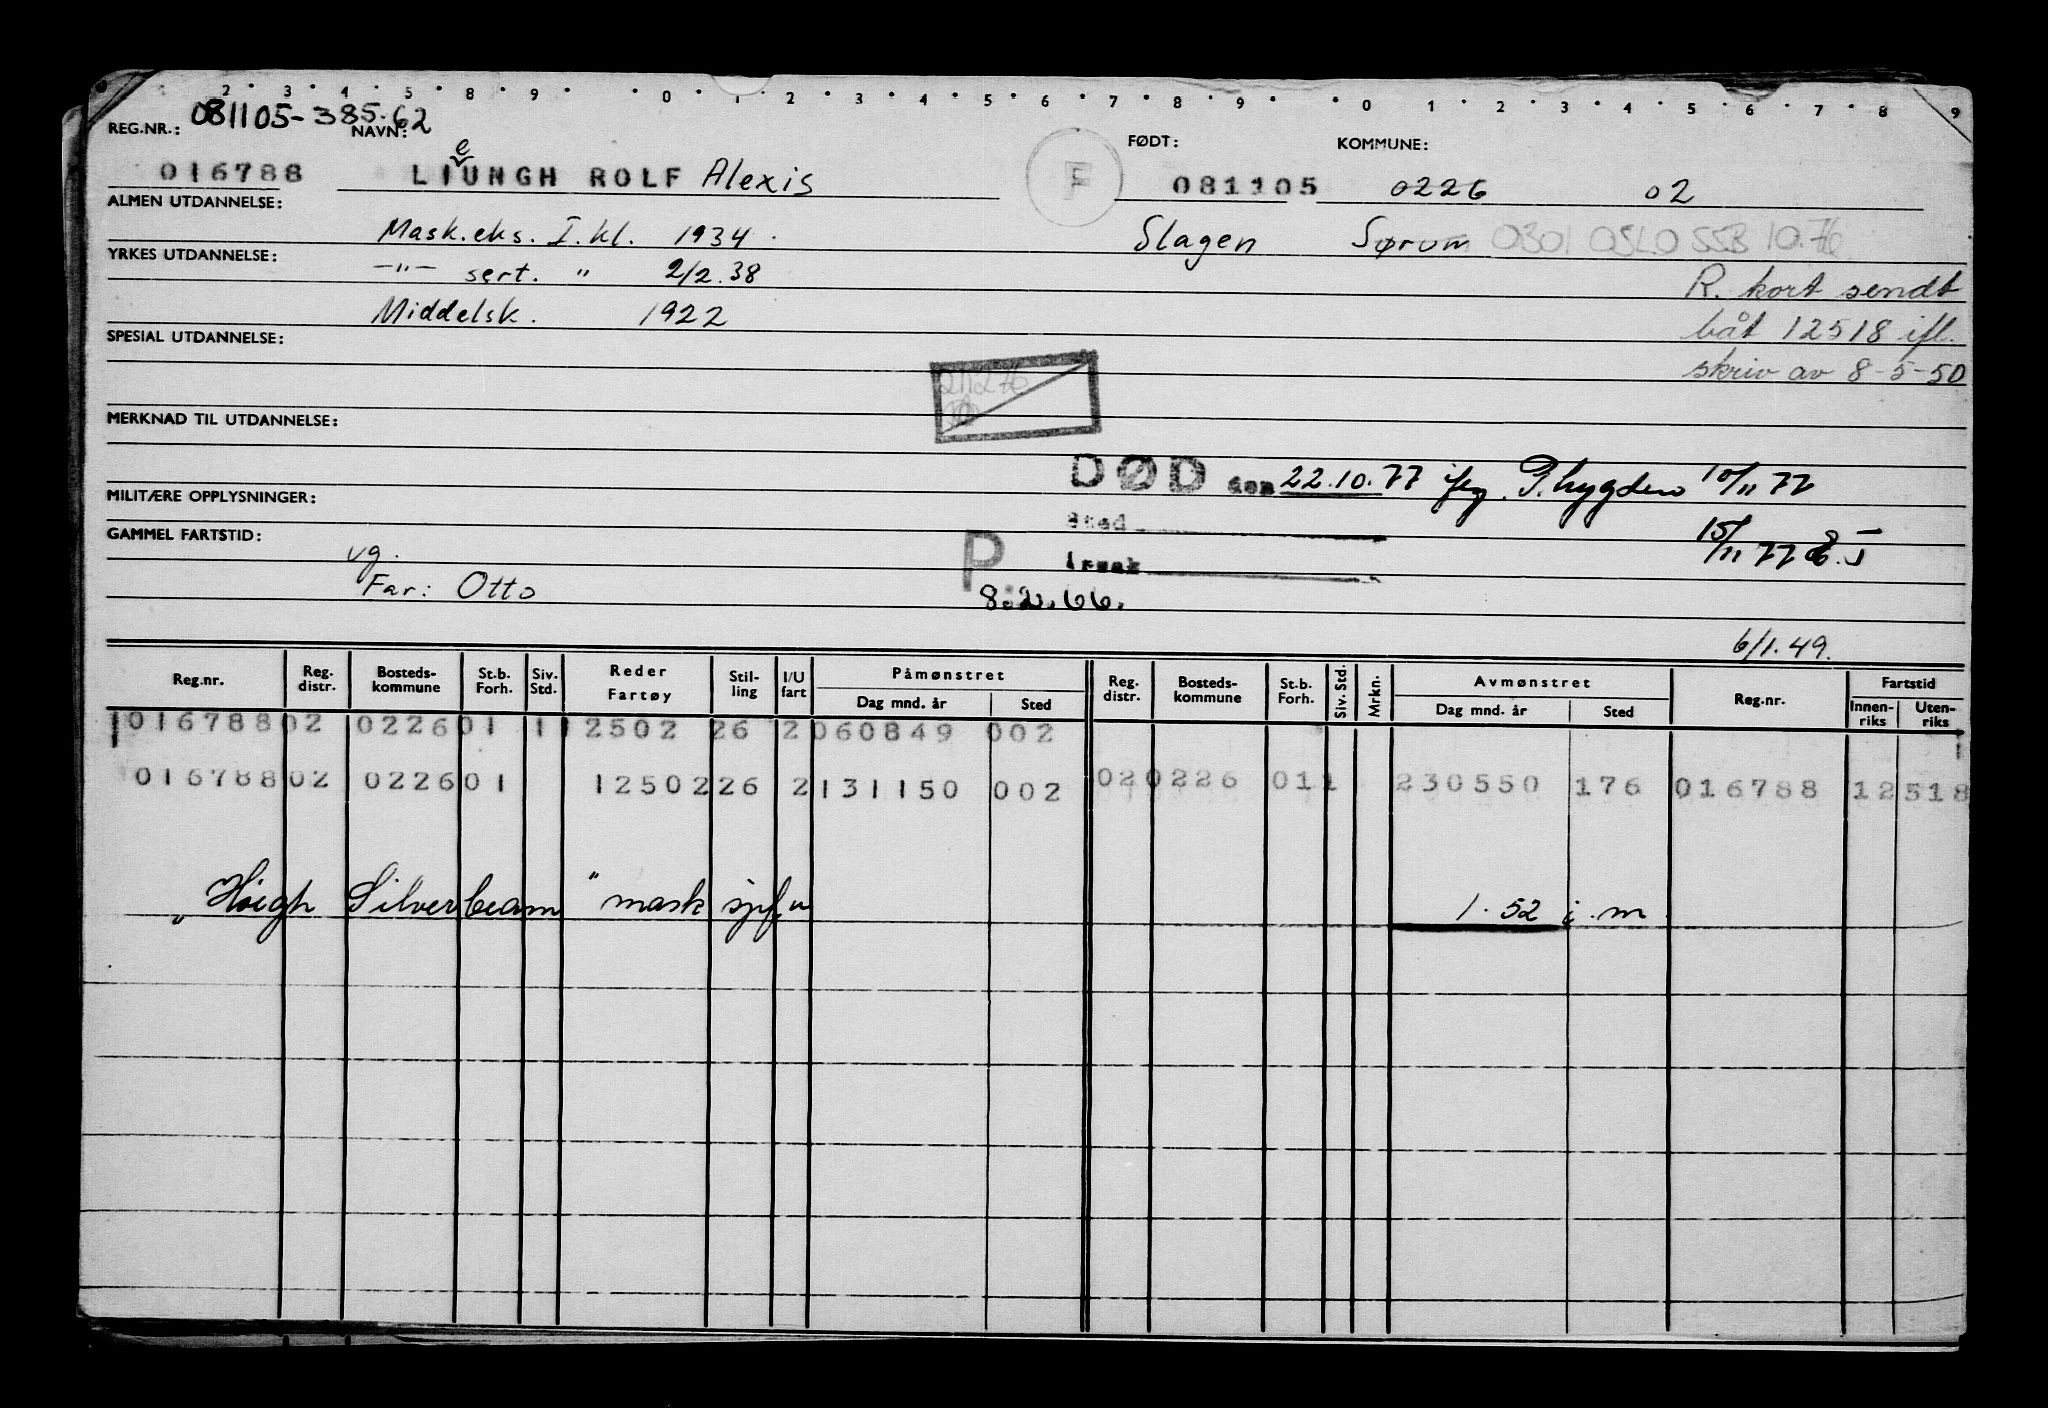 2 3 4 5 8 9 0 1 2 3 4 5 6 7 8 9 0 1 2 3 4 5 6 7 8 9
081105-385.62
REG.NR.: NAVN: FØDT: KOMMUNE:
e
016788 LIUNGH ROLF Alexis F 081105 0226 02
ALMEN UTDANNELSE:
Mask.eks. I. kl. 1934. Slagen Sørum 0301 OSLO SSB 10.76
YRKES UTDANNELSE:
-"- sert. " 2/2.38 R. kort sendt
Middelsk. 1922 båt 12518 ifl.
SPESIAL UTDANNELSE:
skriv av 8-5-50
MERKNAD TIL UTDANNELSE:
DØD den 22.10.77 P.trygden 10/11 77
MILITÆRE OPPLYSNINGER:
Sted
15/11 77
GAMMEL FARTSTID:
vg. P
Årsak
Far: Otto 8.2.66.
6/1.49.
Reg.nr. Reg. distr. Bosteds-kommune St.b. Forh. Siv. Std. Reder Fartøy Stil-ling I/U fart Påmønstret Dag mnd. år Sted Reg. distr. Bosteds-kommune St.b. Forh. Siv. Std. Mrkn. Avmønstret Dag mnd. år Sted Reg.nr. Fartstid Innen-riks Uten-riks
016788 02 0226 01 1 12502 26 2 060849 002
016788 02 0226 01 12502 26 2 131150 002 02 0226 01 1 230550 176 016788 12518
"Høegh Silverbeam" mask sjef u 1.52 i.m